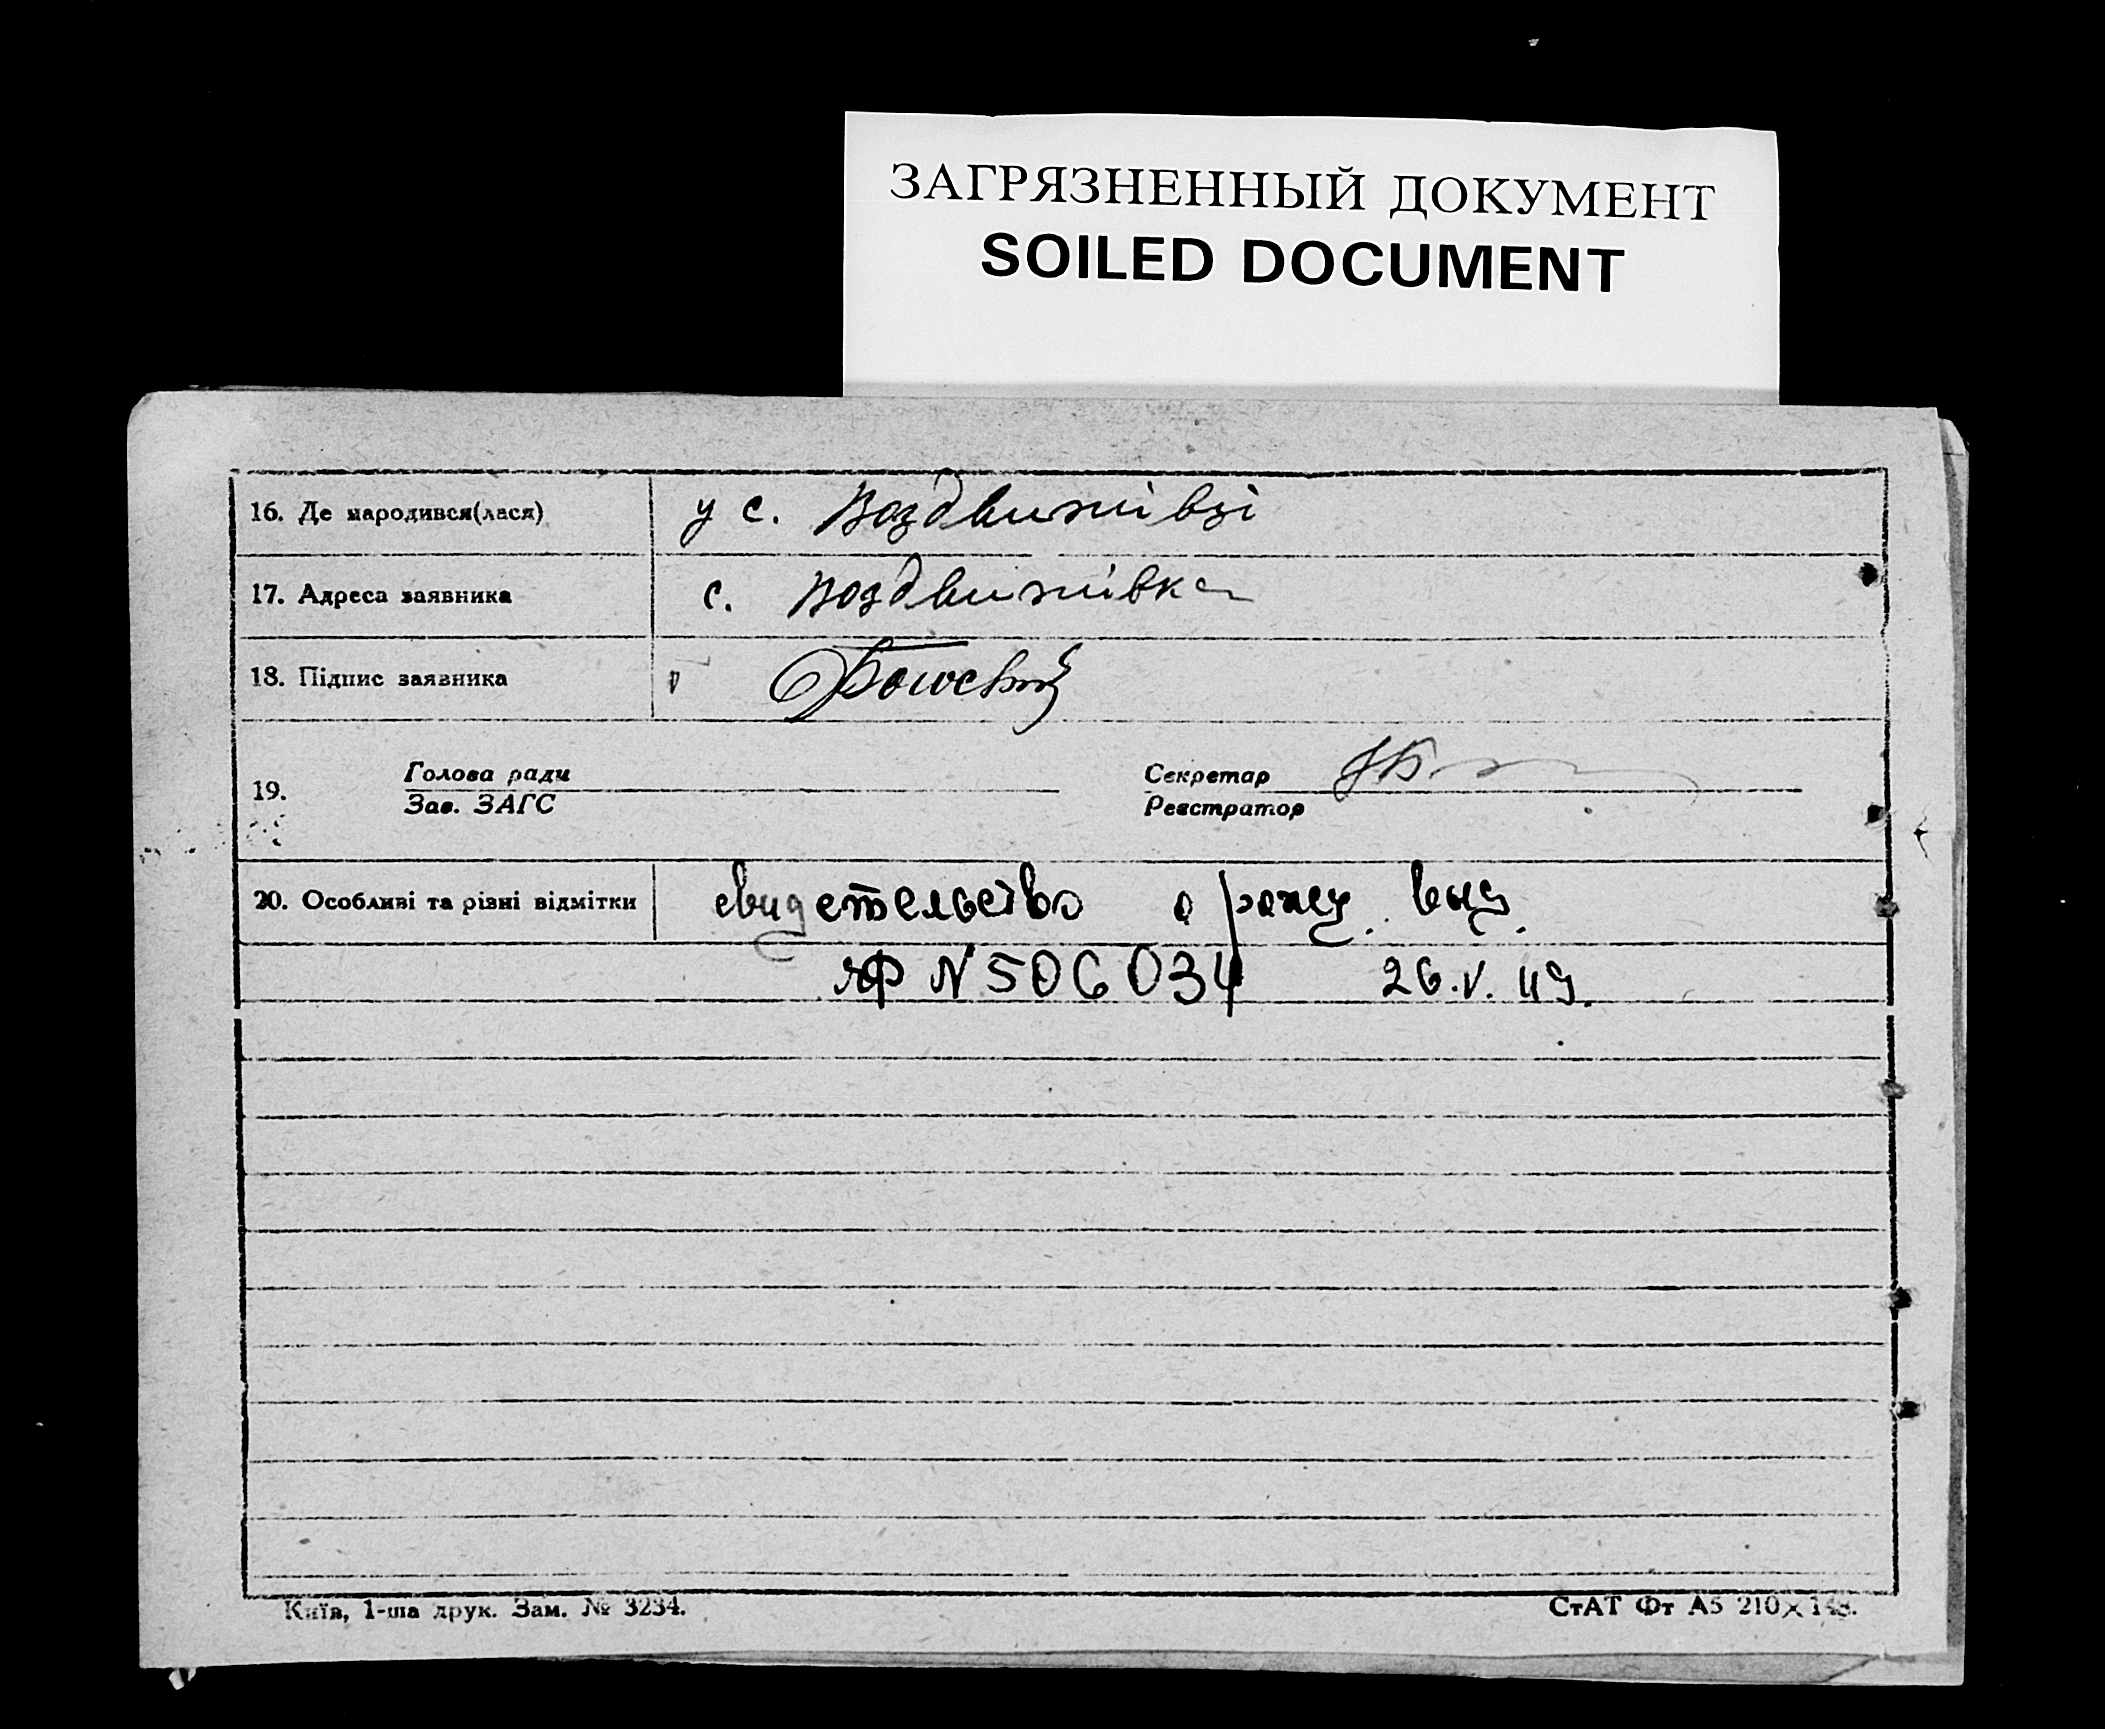 ЗАГРЯЗНЕННЫЙ ДОКУМЕНТ
SOILED DOCUMENT
16. Де народився(лася) у с. Воздвижівці
17. Адреса заявника с. Воздвижівка
18. Підпис заявника
19. Голова ради Секретар
Зав. ЗАГС Реєстратор
20. Особливі та різні відмітки свидетельство о рожд. выд.
ЯФ N 506034 26.V.49.
Київ, 1-ша друк. Зам. № 3234.
СтАТ Фт А5 210×148.